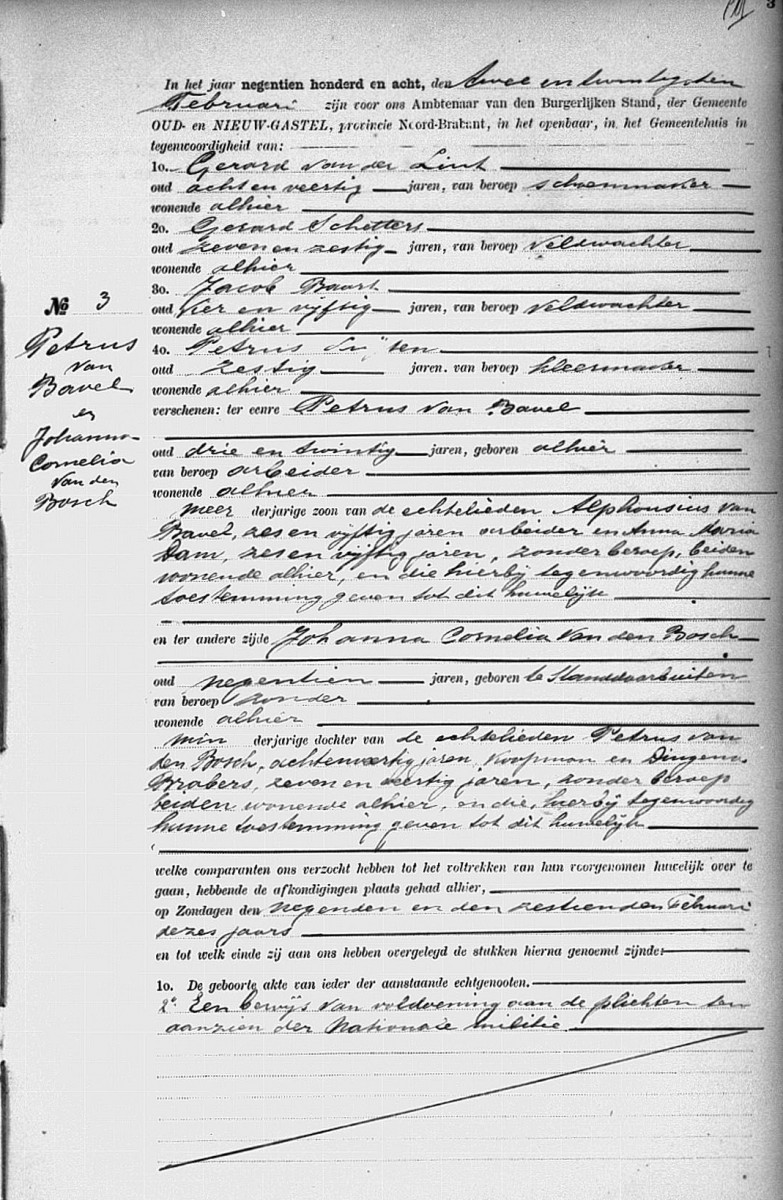 3
In het jaar negentien honderd en acht, den twee en twintigsten
Februari zijn voor ons Ambtenaar van den Burgerlijken Stand, der Gemeente
OUD- en NIEUW-GASTEL, provincie Noord-Brabant, in het openbaar, in het Gemeentehuis in
tegenwoordigheid van:
1o. Gerard van der Lint
oud acht en veertig jaren, van beroep schoenmaker
wonende alhier
2o. Gerard Schetters
oud zeven en zestig jaren, van beroep Veldwachter
wonende alhier
3o. Jacob Baart
oud vier en vijftig jaren, van beroep Veldwachter
wonende alhier
4o. Petrus
oud zestig jaren. van beroep kleermaker
wonende alhier
verschenen: ter eenre Petrus van Bavel
oud drie en twintig jaren, geboren alhier
van beroep arbeider
wonende alhier
meer derjarige zoon van de echtelieden Alphonsius van
Bavel, zes en vijftig jaren arbeider en Anna Maria
Dam, zes en vijftig jaren, zonder beroep, beiden
wonende alhier, en die hierbij tegenwoordig hunne
toestemming geven tot dit huwelijk
en ter andere zijde Johanna Cornelia van den Bosch
oud negentien jaren, geboren te Standdaarbuiten
van beroep zonder
wonende alhier
min derjarige dochter van de echtelieden Petrus van
den Bosch, achtenveertig jaren, Koopman en Dingena
Brabers, zeven en veertig jaren, zonder beroep
beiden wonende alhier, en die, hierbij tegenwoordig
hunne toestemming geven tot dit huwelijk
welke comparanten ons verzocht hebben tot het voltrekken van hun voorgenomen huwelijk over te
gaan, hebbende de afkondigingen plaats gehad alhier,
op Zondagen den negenden en den zestienden Februari
dezes jaars
en tot welk einde zij aan ons hebben overgelegd de stukken hierna genoemd zijnde:
1o. De geboorte akte van ieder der aanstaande echtgenooten.
2o. Een bewijs van voldoening aan de plichten ten
aanzien der Nationale militie.
No 3
Petrus
van
Bavel
en
Johanna
Cornelia
van den
Bosch